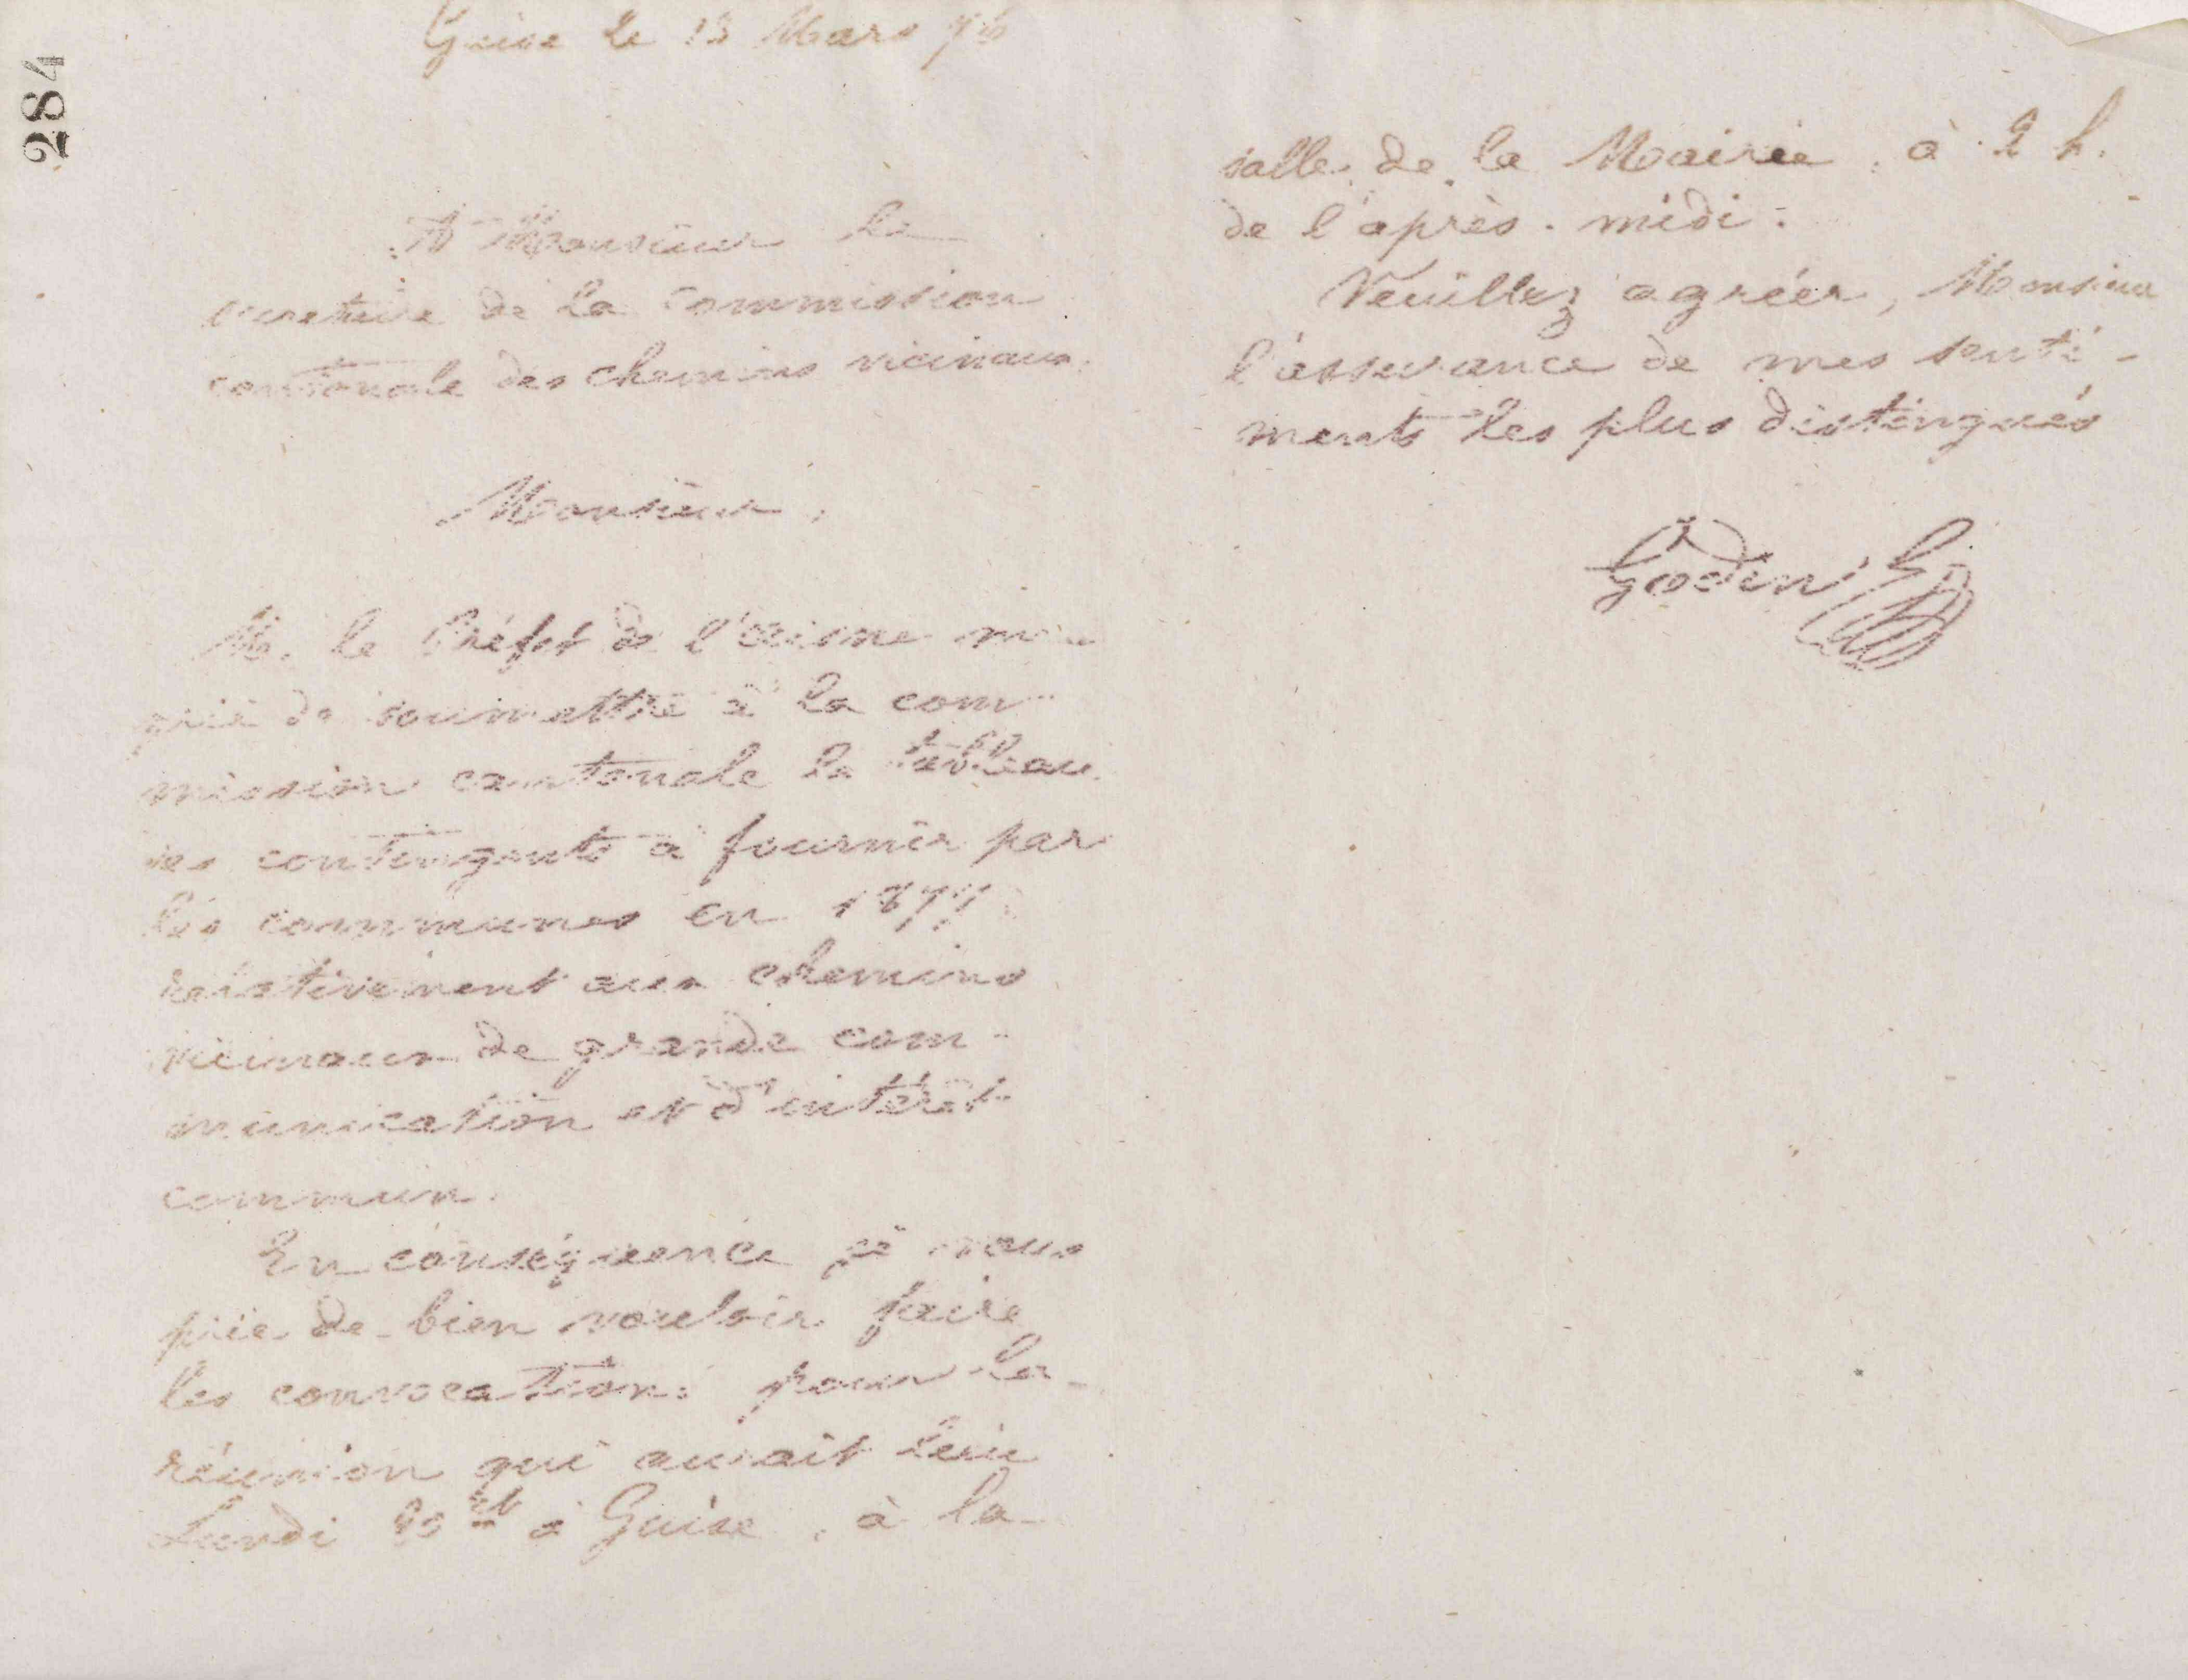 284
Guise le 13 Mars 76
A Monsieur le
secretaire de la Commission
cantonale des chemins vicinaux.
Monsieur,
M. le Préfet de l'aisne me
prie de soumettre à la com-
mission cantonale le tableau
des contingents à fournir par
les communes en 1877
relativement aux chemins
vicinaux de grande com-
munication et d'intérêt
commun.
En conséquence je vous
prie de bien vouloir faire
les convocations pour la
réunion qui aurait lieu
Lundi 20 à Guise, à la
salle de la Mairie, à 2 h.
de l'après-midi.
Veuillez agréer, Monsieur
l'assurance de mes senti-
ments les plus distingués
Godin